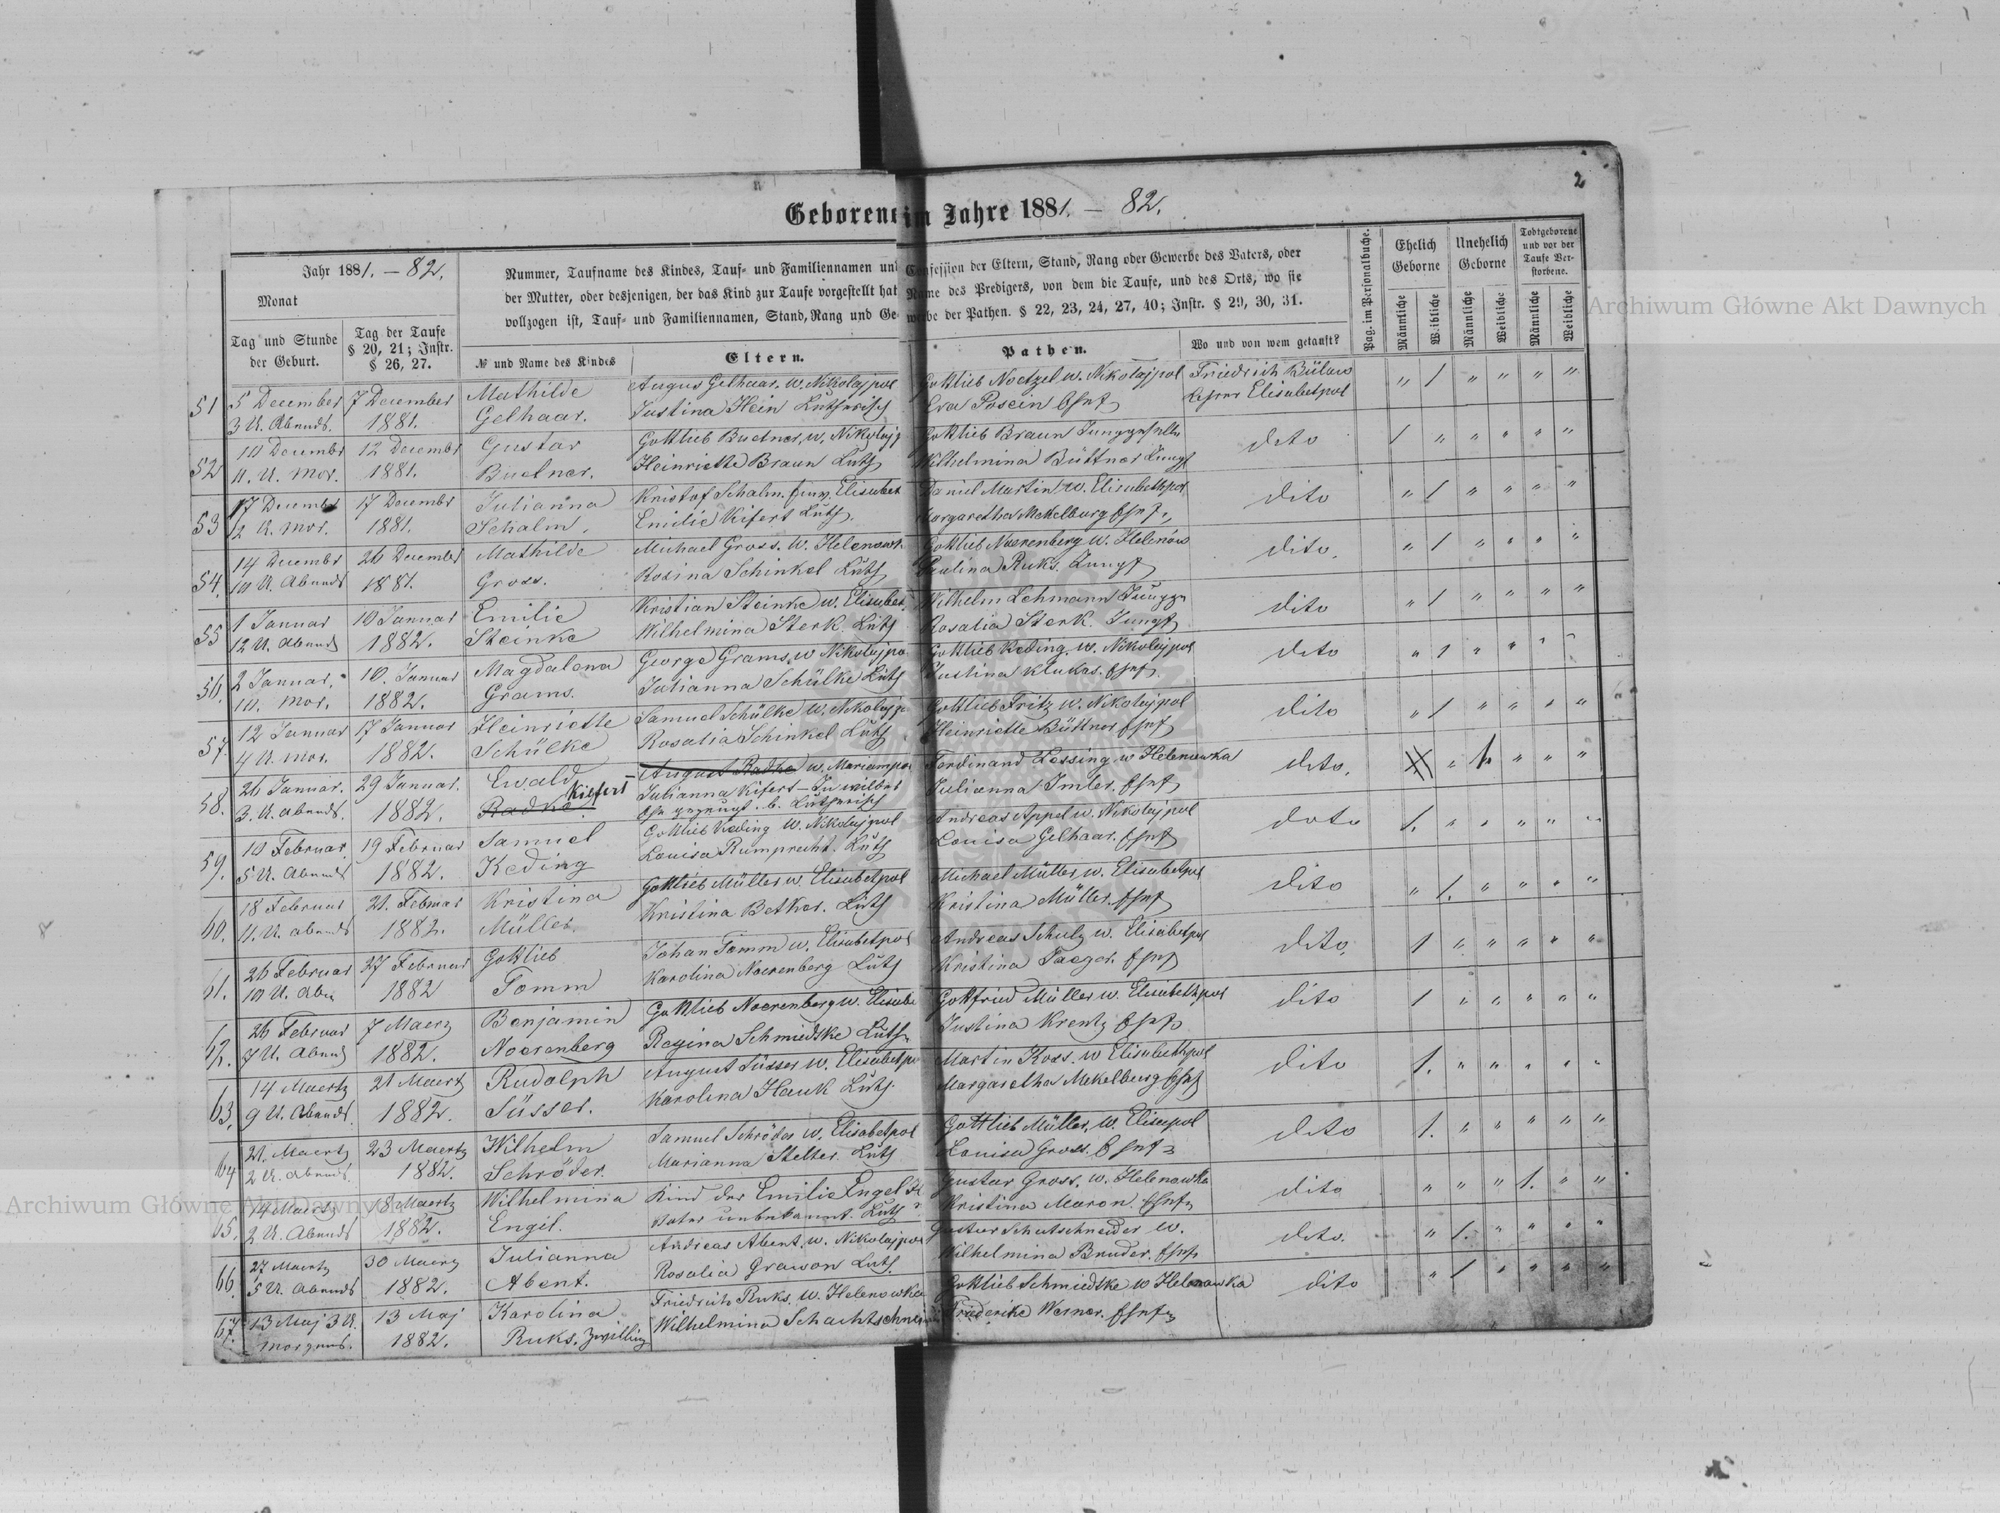 2
Geborene im Jahre 1881. – 82.
Jahr 1881. – 82.
Monat
Tag und Stunde der Geburt.
Tag der Taufe § 20, 21; Instr. § 26, 27.
Nummer, Taufname des Kindes, Tauf- und Familiennamen und Confession der Eltern, Stand, Rang oder Gewerbe des Vaters, oder
der Mutter, oder desjenigen, der das Kind zur Taufe vorgestellt hat Name des Predigers, von dem die Taufe, und des Orts, wo sie
vollzogen ist, Tauf- und Familiennamen, Stand, Rang und Gewerbe der Pathen. § 22, 23, 24, 27, 40; Instr. § 29, 30, 31.
№ und Name des Kindes
Eltern.
Pathen.
Wo und von wem getauft?
Pag. im Personalbuche.
Ehelich Geborne
Unehelich Geborne
Todtgeborene und vor der Taufe Verstorbene.
Männliche
Weibliche
Männliche
Weibliche
Männliche
Weibliche
51 5 December 7 December Mathilde Augus Gelhaar. w. Nikolajpol Gottlieb Noetzel w. Nikolajpol Friedrich Bülow " 1 " " " "
3 U. Abends. 1881. Gelhaar. Justina Hein Lutherisch Eva Posein Elisabetpol
52 10 December 12 December Gustav Gottlieb Buetner, w. Nikolajp Gottlieb Braun dito 1 " " " " "
11. U. Mor. 1881. Buetner. Heinriette Braun Luth Wilhelmina Büttner
53 17 December 17 December Julianna Kristof Schalm. Elisabet Daniel Martin w. Elisabethpol dito " 1 " " " "
12 U. Mor. 1881. Schalm. Emilie Kifert Luth. Margaretha Mekelburg
54. 14 December 26 December Mathilde Michael Gross. W. Helenowk Gottlieb Noerenberg W. Helenow dito. " 1 " " " "
10 U. Abends 1881. Gross. Rosina Schinkel Luth Paulina Ruks.
55 1 Januar 10 Januar Emilie Kristian Steinke w. Elisabet Wilhelm Lehmann dito " 1 " " " "
12 U. Abends 1882. Steinke Wilhelmina Sterk. Luth Rosalia Sterk.
56. 2 Januar. 10. Januar Magdalena George Grams, w Nikolajpo Gottlieb Keding, w. Nikolajpol dito " 1 " " " "
10. Mor. 1882. Grams. Julianna Schülke Luth Justina Klukas.
57 12 Januar 17 Januar Heinriette Samuel Schülke W. Nikolajp Gottlieb Fritz w. Nikolajpol dito " 1 " " " "
4 U. Mor. 1882. Schülke Rosalia Schinkel Luth Heinriette Büttner
58. 26 Januar. 29 Januar. Ewald August Radke w. Mariampo Ferdinand Lessing w Helenowka dito. " 1 " " "
3. U. Abends. 1882. Radke Kiefert Julianna Kifert – In wilder Julianna Imler.
Ehe gezeugt. Lutherisch
59. 10 Februar 19 Februar Samuel Gottlieb Keding W. Nikolajpol Andreas Appel w. Nikolajpol dito 1. " " " " "
5 U. Abends 1882. Keding Louisa Rumprecht. Luth Louisa Gelhaar.
60. 18 Februar 21. Februar Kristina Gottlieb Müller w. Elisabetpol Michael Müller, w. Elisabetpol dito " 1. " " " "
11. U. Abends 1882. Müller. Kristina Betker. Luth Kristina Müller.
61. 26 Februar 27 Februar Gottlieb Johan Tomm w. Elisabetpol Andreas Schulz w. Elisabetpol dito. 1 " " " " "
10 U. Aben 1882 Tomm Karolina Noerenberg Luth Kristina Jaeger.
62. 26 Februar 7 Maerz Benjamin Gottlieb Noerenberg w. Elisabe Gottfried Müller w. Elisabethpol dito 1 " " " " "
7 U. Abend 1882. Noerenberg Regina Schmidske Luth Justina Krentz
63. 14 Maertz 21 Maertz Rudolph August Süsser w. Elisabetpo Martin Koss. w Elisabethpol dito 1. " " " " "
9 U. Abends. 1882. Süsser. Karolina Hauk Luth. Margaretha Mekelburg
64 21. Maertz 23 Maertz Wilhelm Samuel Schröder w. Elisabetpol Gottlieb Müller, W. Elisapol dito 1. " " " " "
2 U. Abends. 1882. Schröder. Marianna Stelter. Luth Louisa Gross.
65. 14 Maertz 18 Maertz Wilhelmina Kind der Emilie Engel Gustav Gross, w. Helenowka dito " " " 1. " "
2 U. Abends 1882. Engel. Vater unbekannt. Luth Kristina Maron.
66 27 Maertz 30 Maerz Julianna Andreas Abent. w. Nikolajpol Gustav Schatschneider w. dito. " 1. " " " "
5 U. Abends 1882. Abent. Rosalia Grawon Luth. Wilhelmina Bruder.
67. 13 Maj 3 U. 13 Maj Karolina Friedrich Ruks. W. Helenowka Gottlieb Schmidske w Helenowka dito " 1 " " " "
Morgens. 1882. Ruks. Zwilling Wilhelmina Schachtschnei Friederike Werner.
Archiwum Główne Akt Dawnych
Archiwum Główne Akt Dawnych